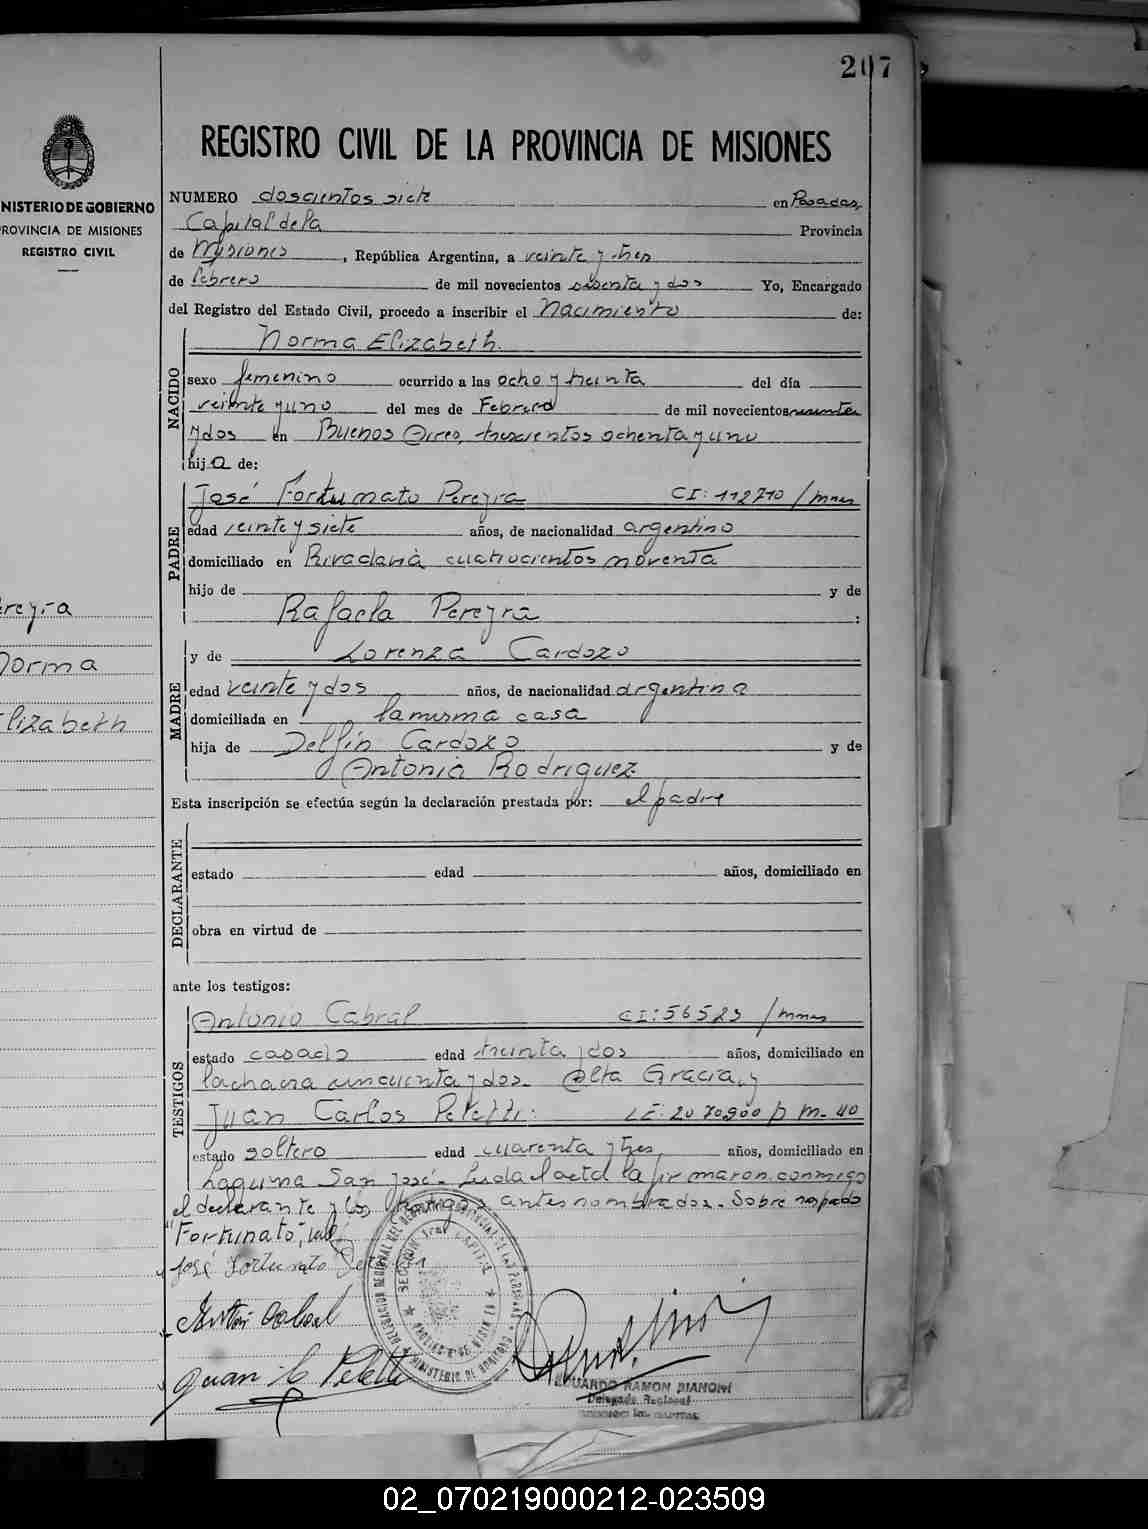 207
REGISTRO CIVIL DE LA PROVINCIA DE MISIONES
NISTERIO DE GOBIERNO
ROVINCIA DE MISIONES
REGISTRO CIVIL
NUMERO doscientos siete en Posadas,
Capital de la Provincia
de Misiones, República Argentina, a veinte y tres
de febrero de mil novecientos sesenta y dos Yo, Encargado
del Registro del Estado Civil, procedo a inscribir el Nacimiento de:
Norma Elizabeth.
NACIDO
sexo femenino ocurrido a las ocho y treinta del día
veinte y uno del mes de Febrero de mil novecientos sesenta
y dos en Buenos Aires, trescientos ochenta y uno
hija de:
José Fortunato Pereyra CI: 112710 / mnes
PADRE
edad veinte y siete años, de nacionalidad argentino
domiciliado en Rivadavia cuatrocientos noventa
hijo de y de
Rafaela Pereyra :
y de Lorenza Cardozo
MADRE
edad veinte y dos años, de nacionalidad argentina
domiciliada en la misma casa
hija de Delfin Cardozo y de
Antonia Rodriguez
Esta inscripción se efectúa según la declaración prestada por: el padre
DECLARANTE
estado edad años, domiciliado en
obra en virtud de
ante los testigos:
Antonio Cabral CI: 56523 / mnes
TESTIGOS
estado casado edad treinta y dos años, domiciliado en
la chacra cincuenta y dos. Alta Gracia, y
Juan Carlos Peletti: LE: 2070900 D M. 40
estado soltero edad cuarenta y tres años, domiciliado en
Laguna San José. Leida el acta la firmaron conmigo
el declarante y los testigos antes nombrados. Sobre raspado
"Fortunato", vale
José Fortunato Pereyra
Antonio Cabral
Juan C Peletti
EDUARDO RAMON BIANCHI
Delegado Regional
ereyra
Norma
Elizabeth
02_070219000212-023509